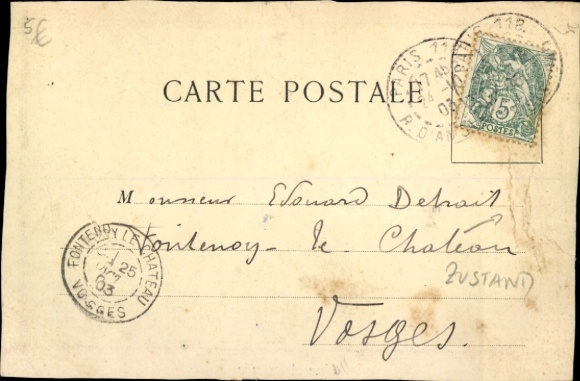 5€
PARIS 118
R. D'AM
PARIS 118
5
POSTES
CARTE POSTALE
Monsieur Edouard Detrait
Fontenoy-le-Chatéau
ZUSTAND
Vosges.
FONTENOY LE CHATEAU
25
03
VOSGES